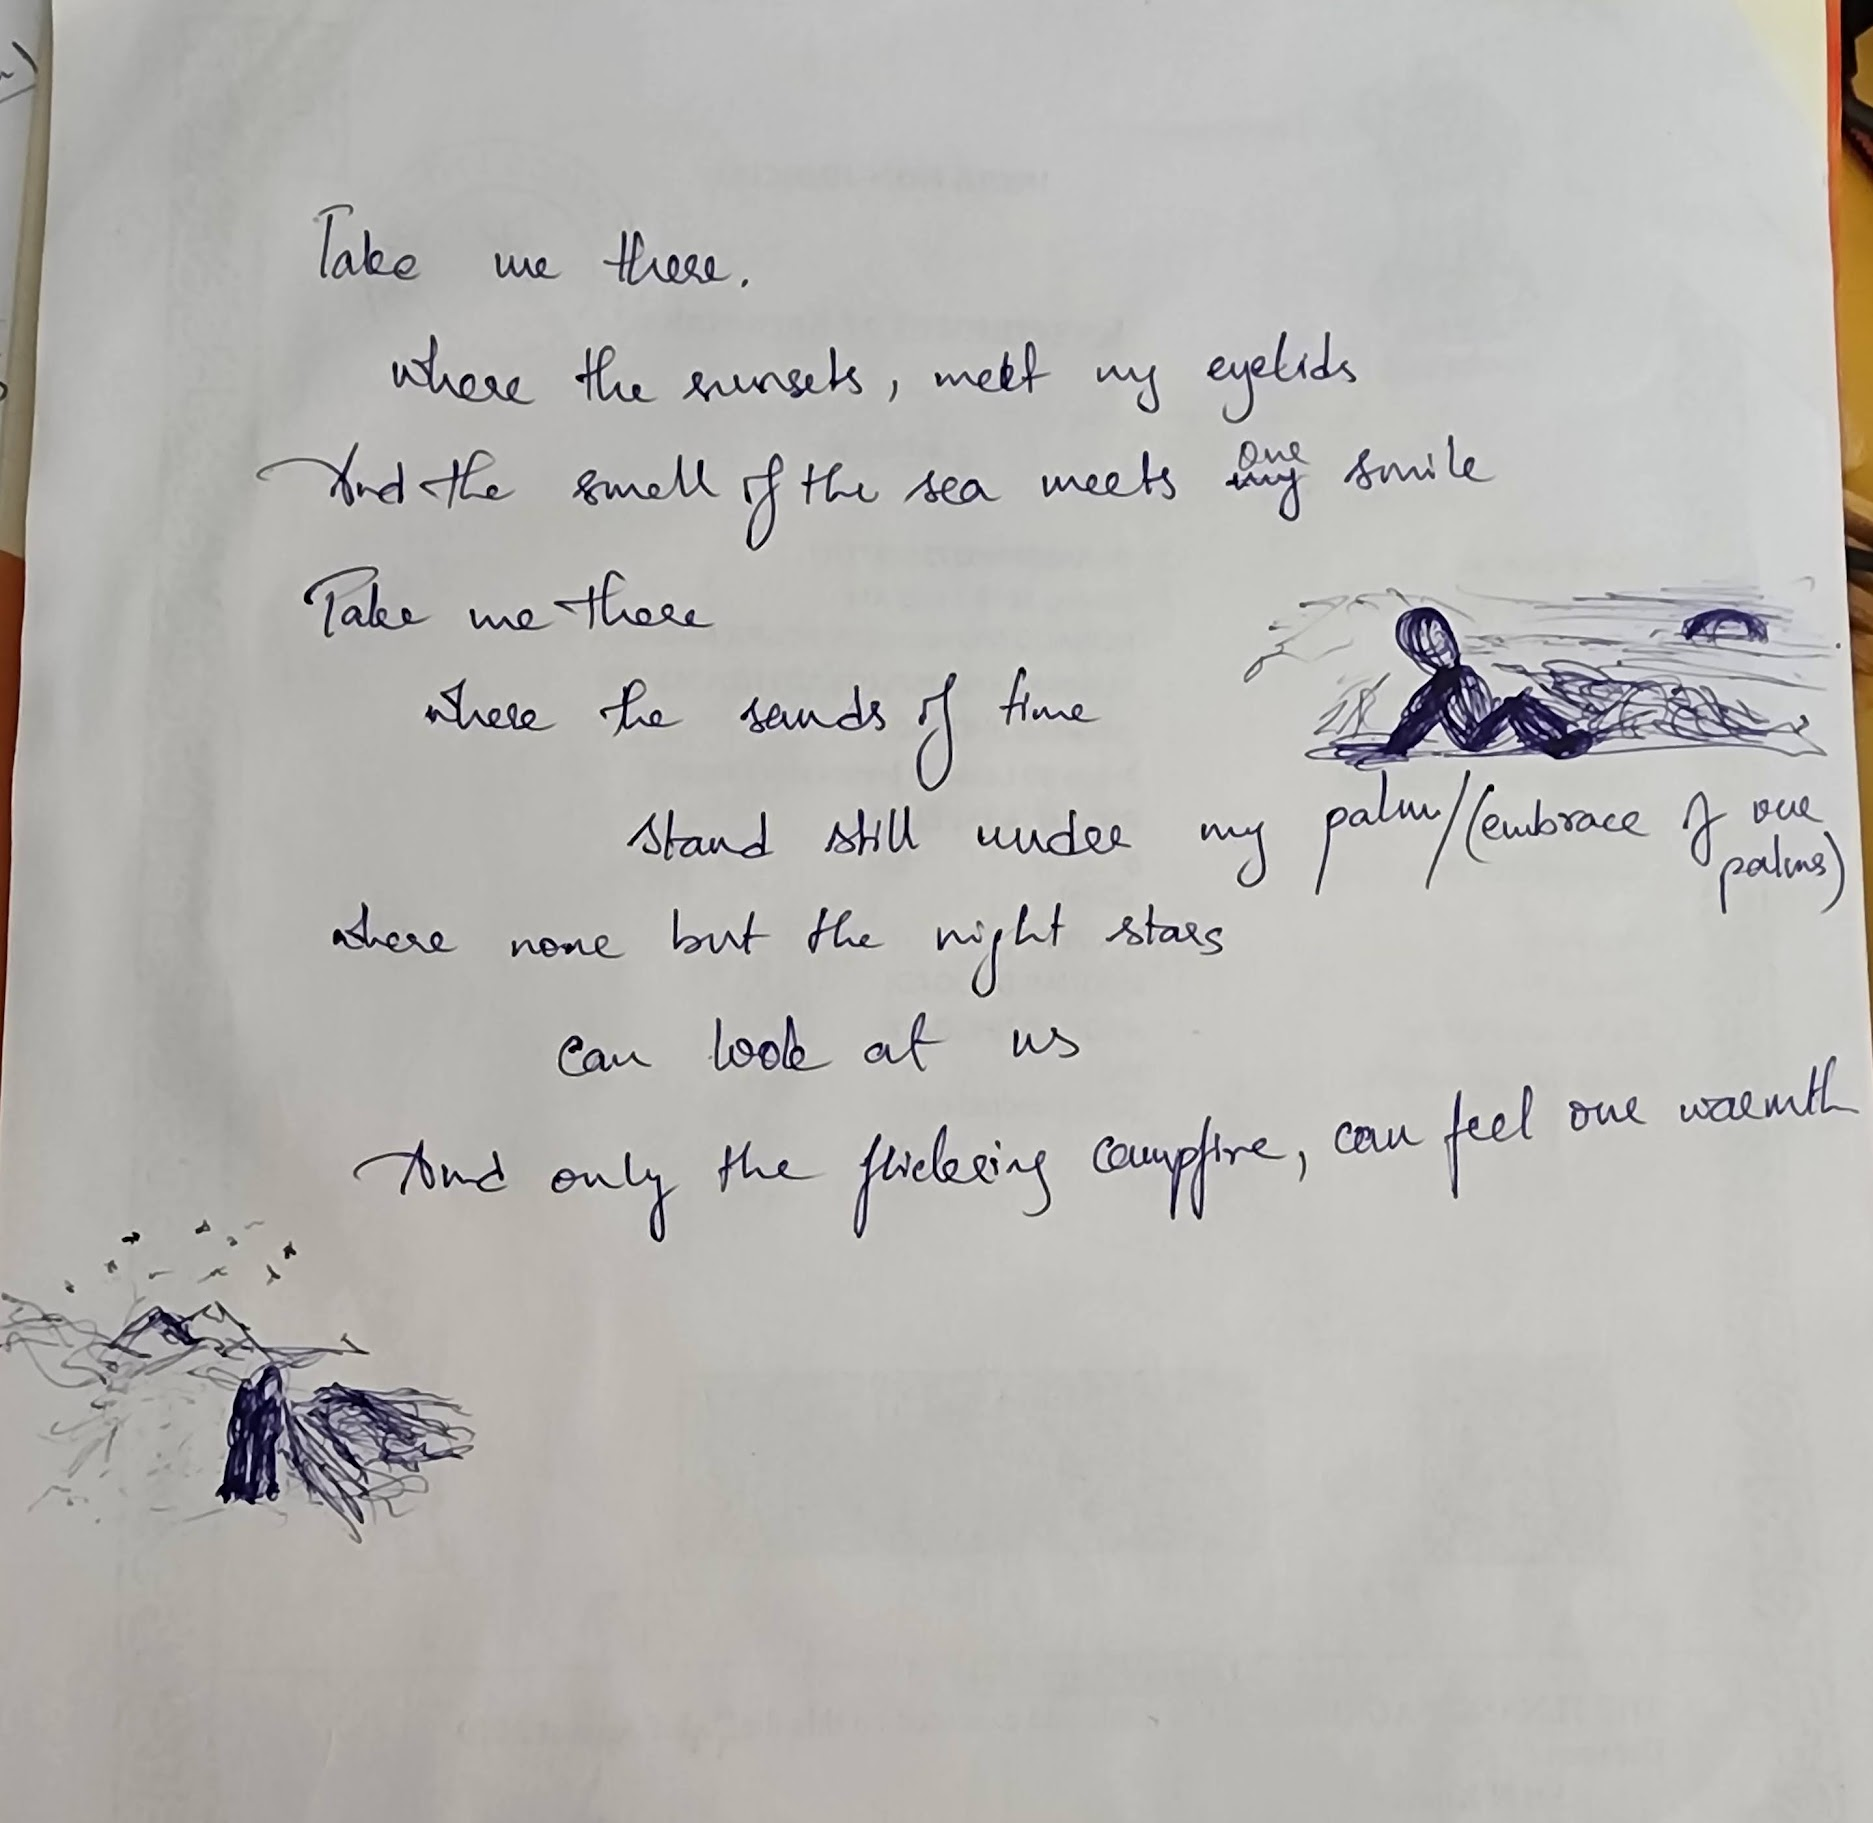 Take me there.
where the sunsets, meet my eyelids
And the smell of the sea meets our smile
Take me there
where the sands of time
stand still under my palm/(embrace of our
palms)
where none but the night stars
can look at us
And only the flickering campfire, can feel our warmth